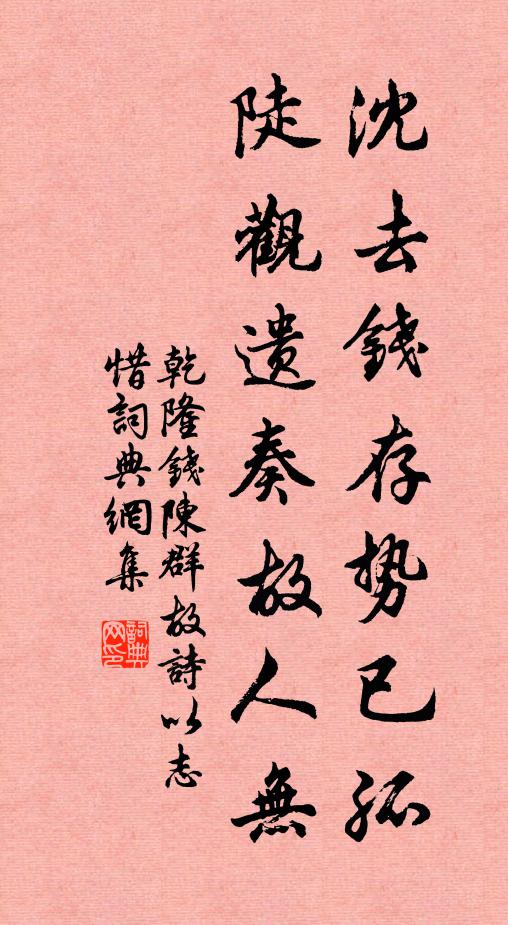 沈去錢存勢已孤
陡觀遺奏故人無
乾隆錢陳群故詩以志
惜詞典網集
詞典网印